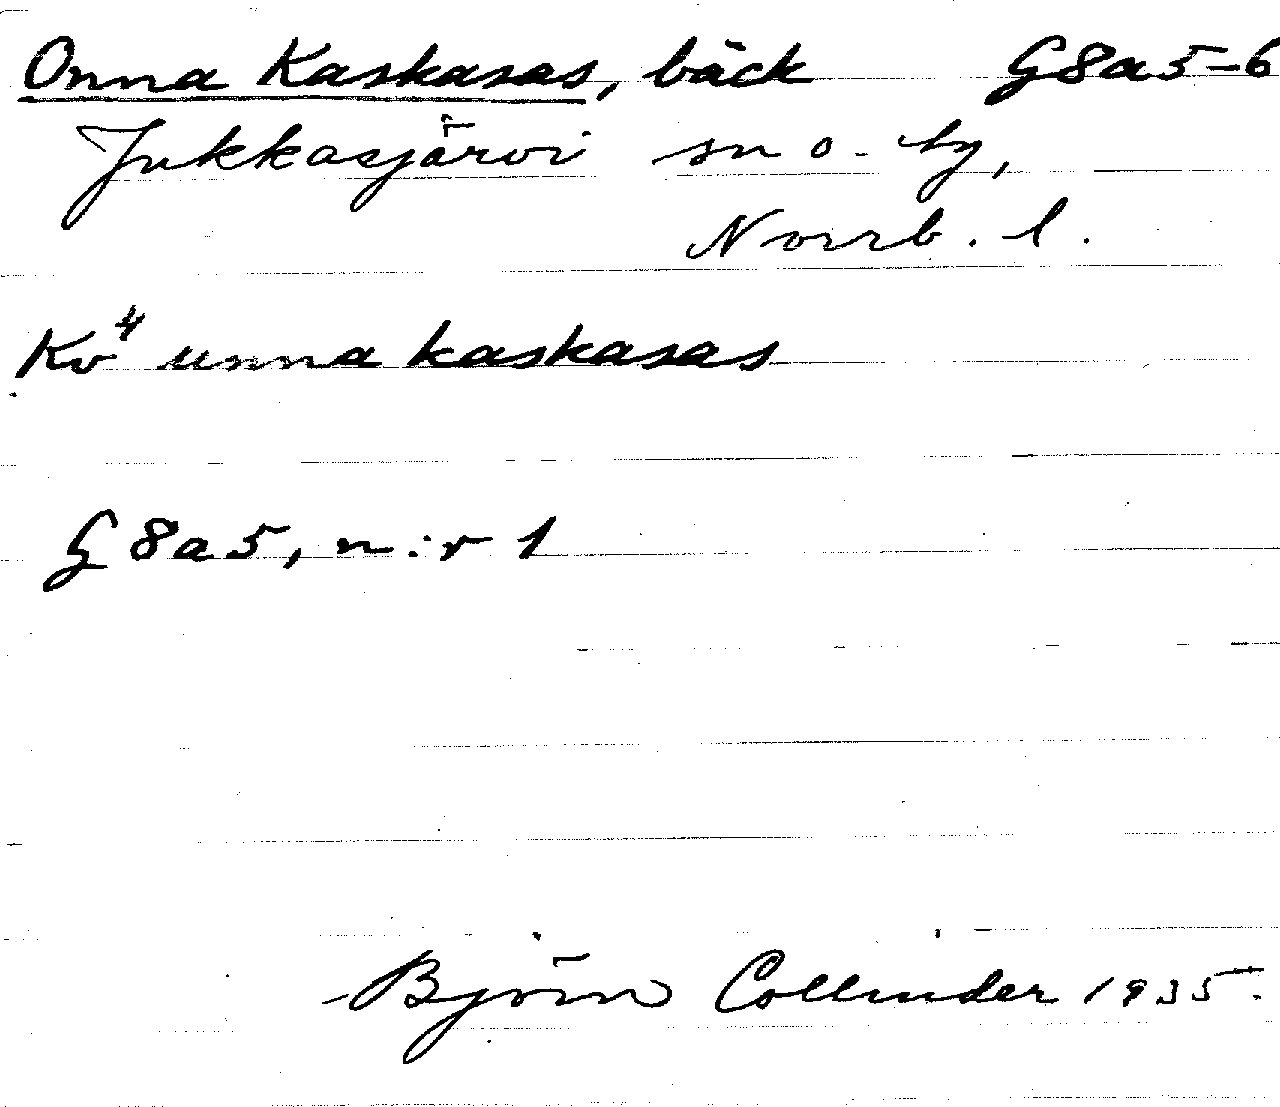 Onna Kaskasas, bäck G8a5-6
Jukkasjärvi sn o. by,
Norrb. l.
Kv⁴ unna kaskasas
G8a5, n:r 1
Björn Collinder 1935.